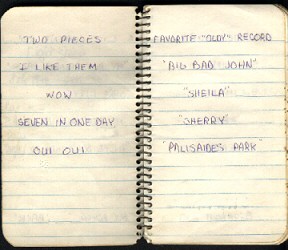 TWO PIECES
I LIKE THEM
WOW
SEVEN IN ONE DAY
OUI OUI
FAVORITE "OLDY" RECORD
"BIG BAD JOHN"
"SHEILA"
"SHERRY"
"PALISAIDES PARK"